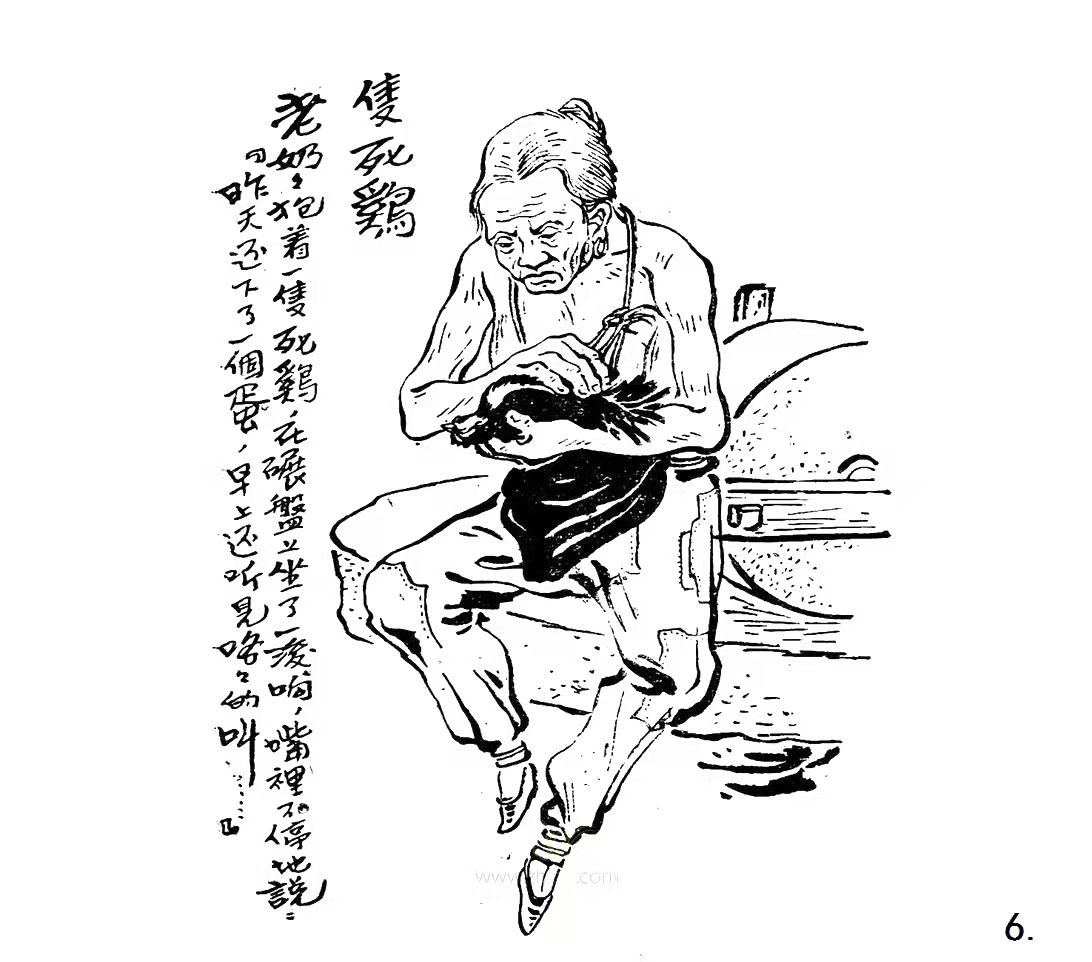 隻死鷄
老奶々抱着一隻死鷄，在碾盤上坐了一後晌，嘴裡不停地説：
「昨天还下了一個蛋，早上还听見咯々的叫……」
6.